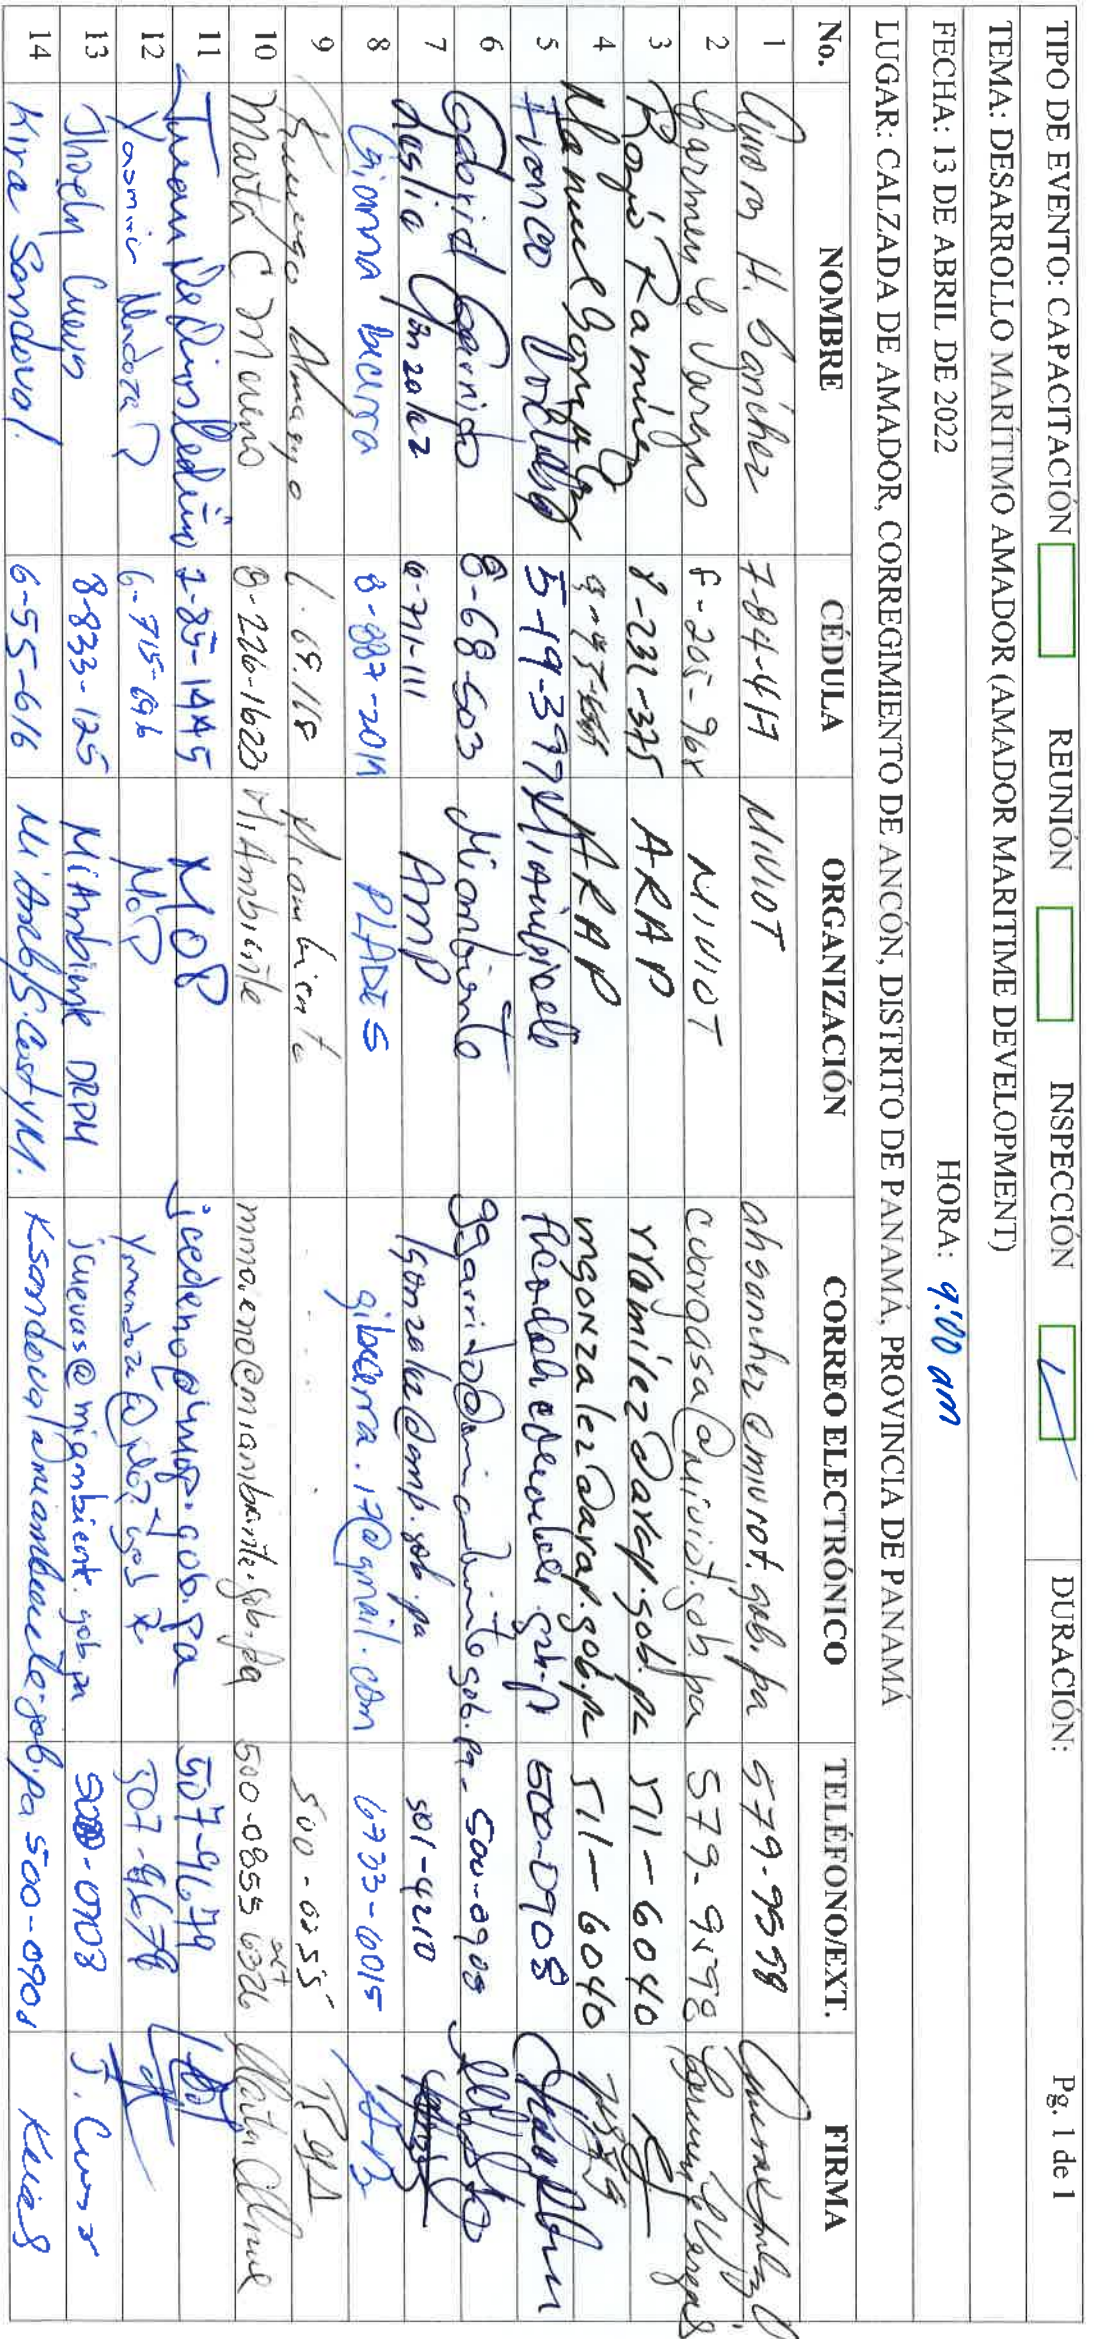 TIPO DE EVENTO: CAPACITACIÓN REUNIÓN INSPECCIÓN DURACIÓN: Pg. 1 de 1
TEMA: DESARROLLO MARÍTIMO AMADOR (AMADOR MARITIME DEVELOPMENT)
FECHA: 13 DE ABRIL DE 2022 HORA: 9:00 am
LUGAR: CALZADA DE AMADOR, CORREGIMIENTO DE ANCÓN, DISTRITO DE PANAMÁ, PROVINCIA DE PANAMÁ
No. NOMBRE CÉDULA ORGANIZACIÓN CORREO ELECTRÓNICO TELÉFONO/EXT. FIRMA
1 H. Sánchez 7-84-417 MIVIOT ahsanchez@miviot.gob.pa 579-9598
2 Carmen C Vargas 8-205-968 MIVIOT cvargasa@miviot.gob.pa 579-9598
3 Rogio Ramírez 8-231-375 ARAP rramirez@arap.gob.pa 511-6040
4 Manuel ARAP mgonzalez@arap.gob.pa 511-6040
5 Franco 5-19-397 MiAmbiente 500-0908
6 Gabriel Garrido 8-68-503 Miambiente ggarrido@miambiente.gob.pa 500-0908
7 Leslie González 6-711-111 AMP lgonzalez@amp.gob.pa 501-4210
8 Gianna becerra PLADES gibecerra.17@gmail.com 6733-6015
9 Almagro Miambiente 500-0855
10 Marta C Moreno 8-226-1623 MiAmbiente mmoreno@miambiente.gob.pa 500-0855 ext 6326
11 Juan De Dios Cedeño 2-85-1445 MOP jcedeno@mop.gob.pa 507-9679
12 Yasmin Mendoza 6-715-696 507-9679
13 Jhoely Cuevas 8-833-125 MiAmbiente DRPM jcuevas@miambiente.gob.pa J. Cuevas
14 Kira Sandoval 6-55-616 ksandoval@miambiente.gob.pa 500-0908